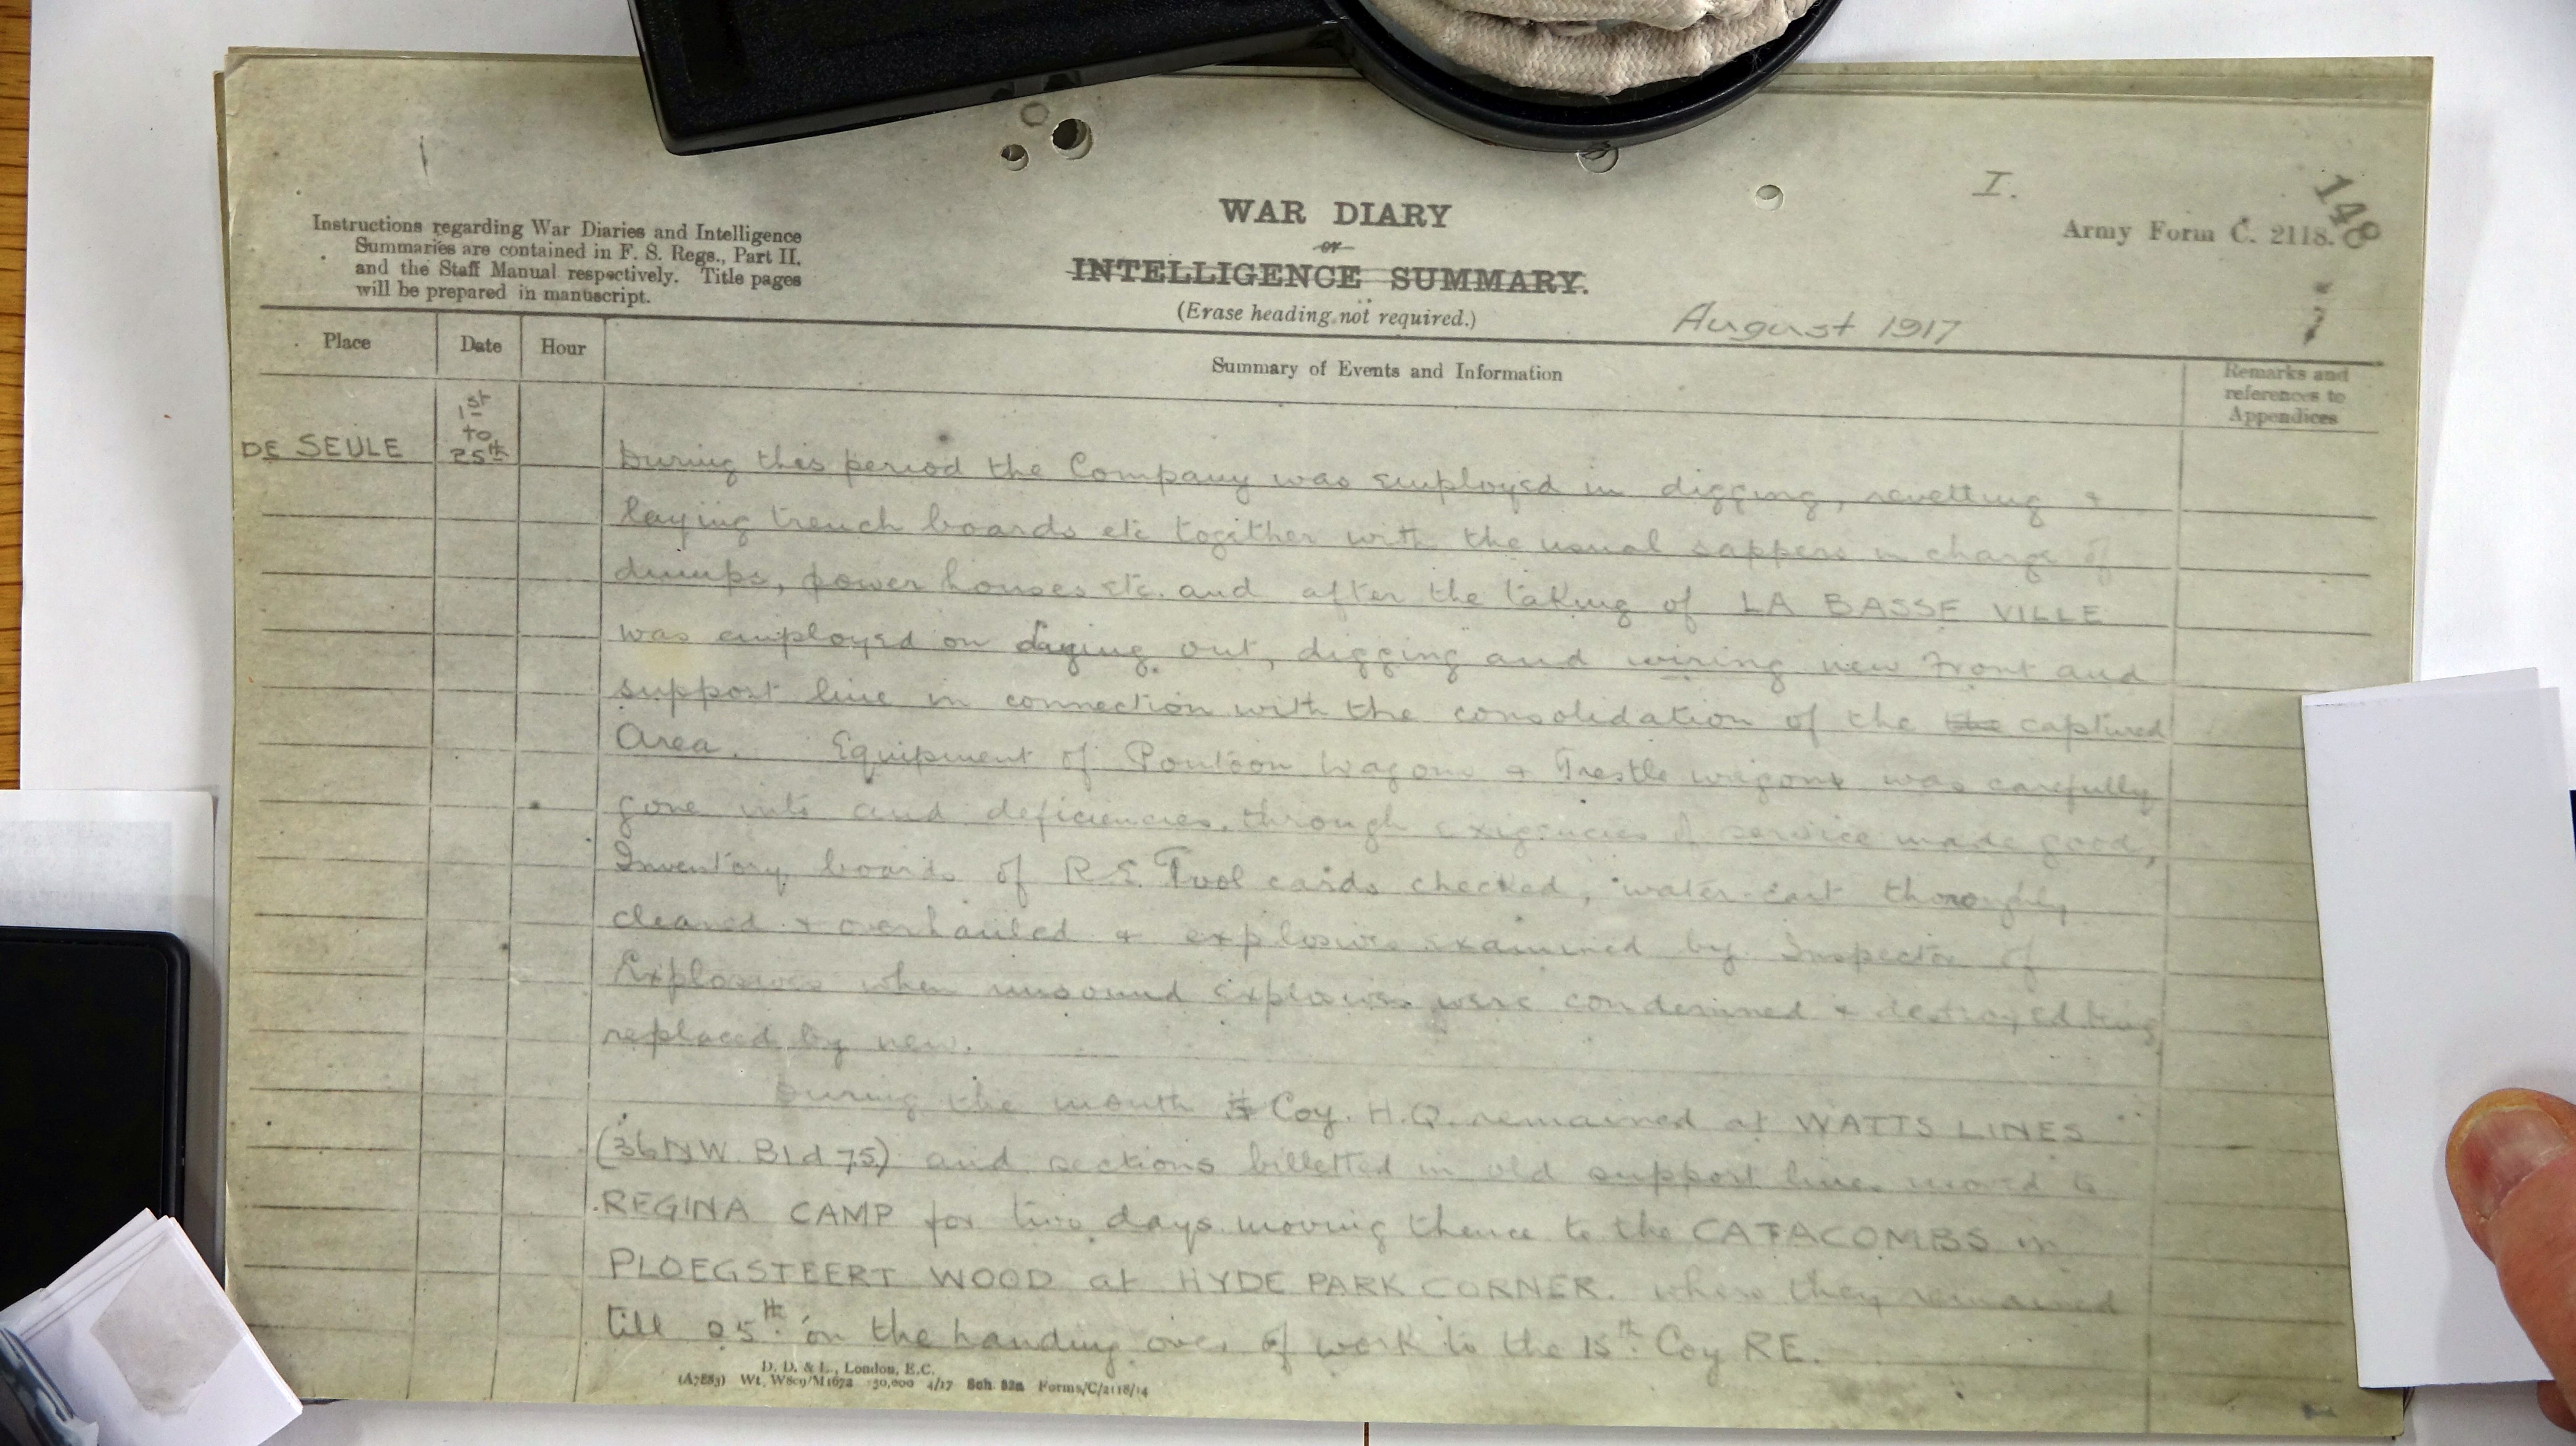 I.
148
Instructions regarding War Diaries and Intelligence
Summaries are contained in F. S. Regs., Part II.
and the Staff Manual respectively. Title pages
will be prepared in manuscript.
WAR DIARY
or
INTELLIGENCE SUMMARY.
(Erase heading not required.)
Army Form C. 2118.
August 1917
Place Date Hour Summary of Events and Information Remarks and
references to
Appendices
DE SEULE 1st
to
25th
During this period the Company was employed in digging, revetting &
laying trench boards etc together with the usual sappers in charge of
dumps, power houses etc. and after the taking of LA BASSE VILLE
was employed on laying out, digging and wiring new Front and
support line in connection with the consolidation of the the captured
Area. Equipment of Pontoon Wagons & Trestle wagons was carefully
gone into and deficiencies, through exigencies of service made good,
Inventory boards of R.E. Tool carts checked, water-cart thoroughly
cleaned & overhauled & explosives examined by Inspector of
Explosives when unsound explosives were condemned & destroyed being
replaced by new.
During the month Coy. H.Q. remained at WATTS LINES
(36NW B1d 7.5) and sections billetted in old support line moved to
REGINA CAMP for two days moving thence to the CATACOMBS in
PLOEGSTEERT WOOD at HYDE PARK CORNER. where they remained
till 25th on the handing over of work to the 15th Coy RE.
D. D. & L., London, E.C.
(A7883) Wt. W809/M1672 350,000 4/17 Sch. 52a Forms/C/2118/14